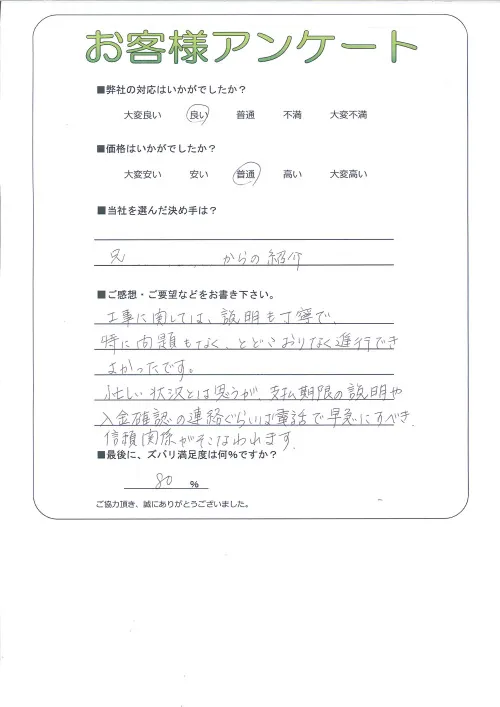 お客様アンケート
■弊社の対応はいかがでしたか？
大変良い 良い 普通 不満 大変不満
■価格はいかがでしたか？
大変安い 安い 普通 高い 大変高い
■当社を選んだ決め手は？
兄 からの紹介
■ご感想・ご要望などをお書き下さい。
工事に関しては、説明も丁寧で、
特に問題もなく、とどこおりなく進行でき
よかったです。
忙しい状況とは思うが、支払期限の説明や
入金確認の連絡ぐらいは電話で早急にすべき。
信頼関係がそこなわれます。
■最後に、ズバリ満足度は何%ですか？
80 %
ご協力頂き、誠にありがとうございました。